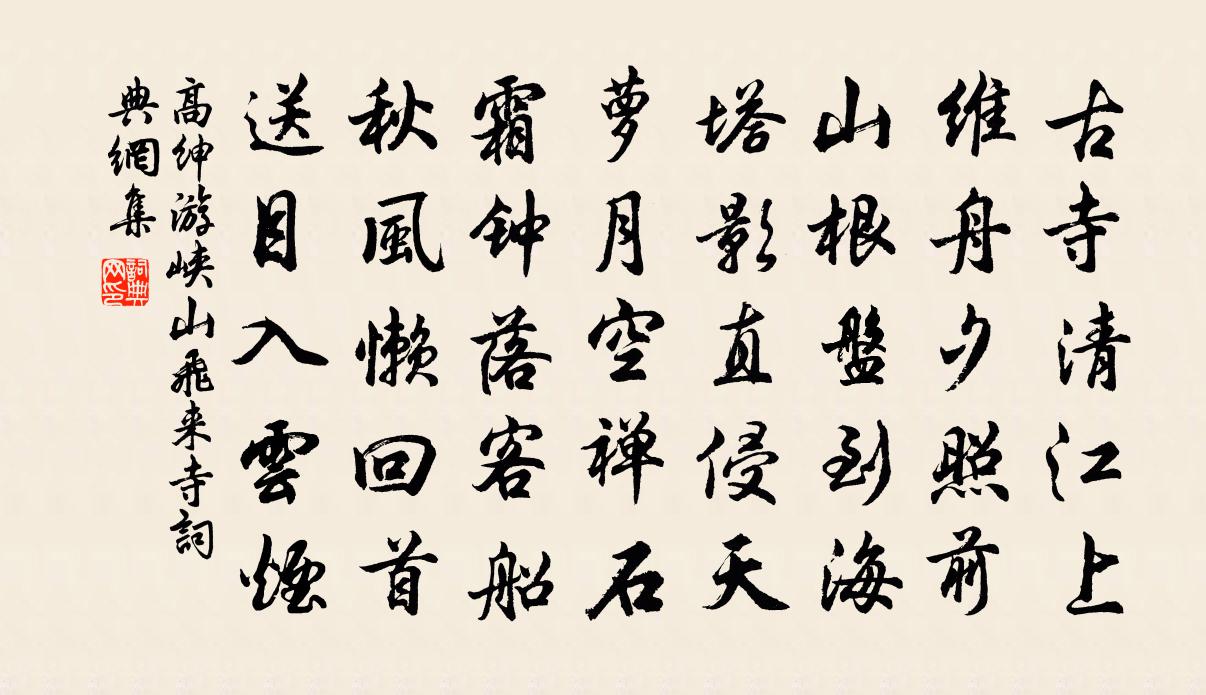 古寺清江上
維舟夕照前
山根盤到海
塔影直侵天
萝月空禅石
霜钟落客船
秋風懒回首
送目入雲煙
高绅游峡山飛来寺詞
典網集
詞典网印